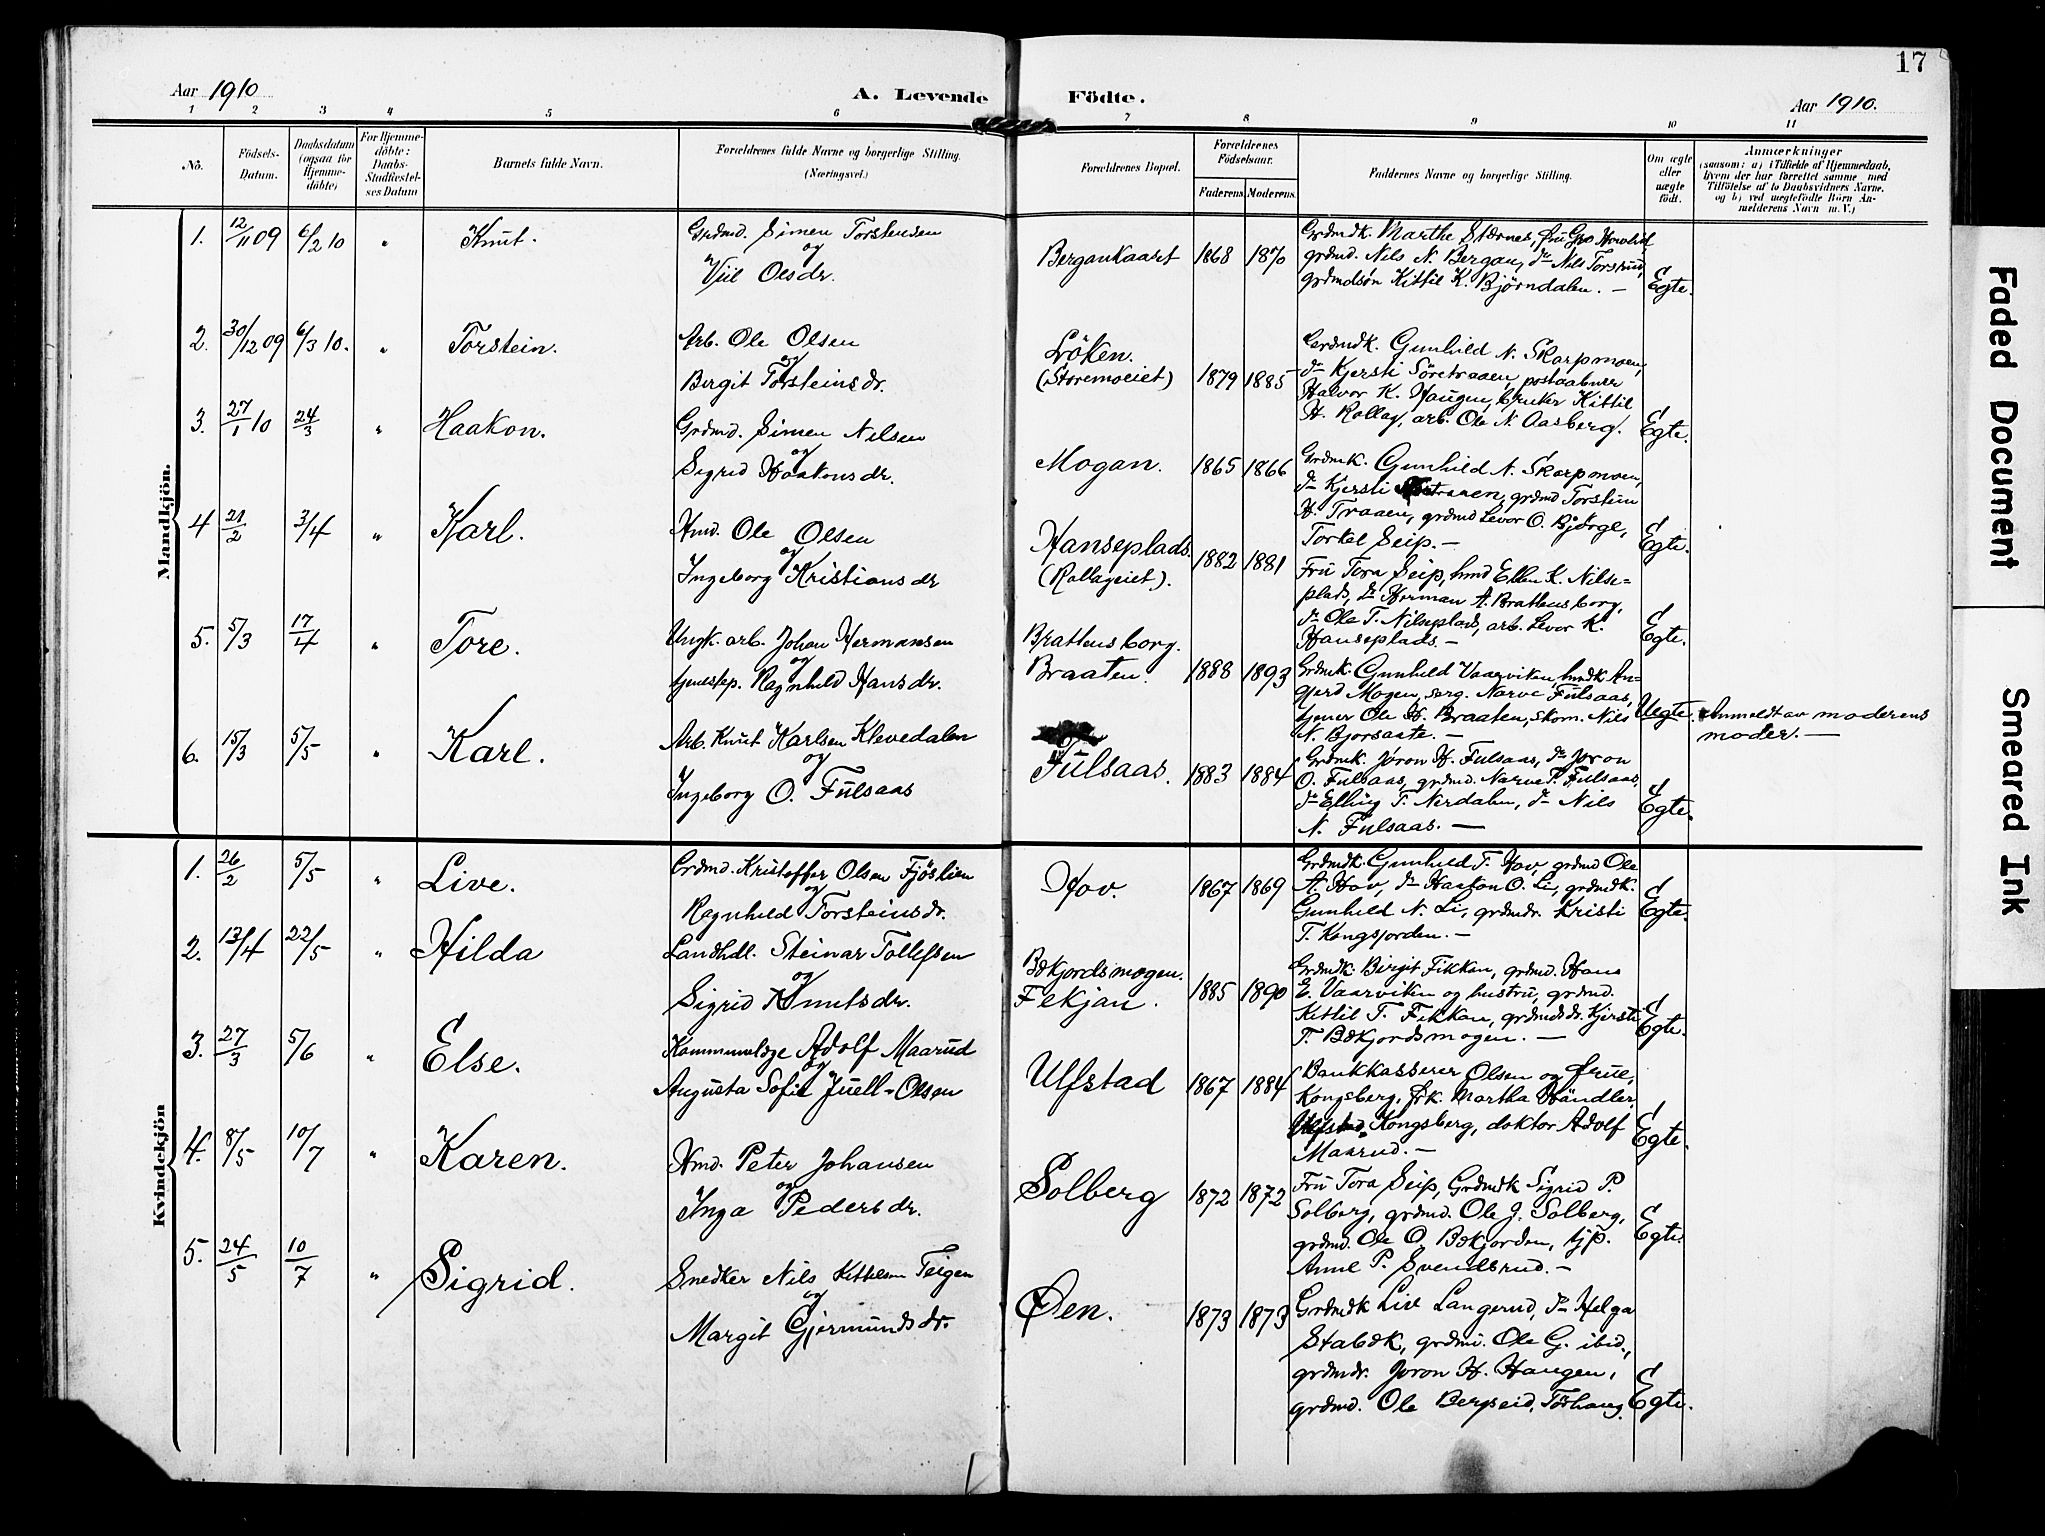 17
Aar 1910
A. Levende Födte.
Aar 1910.
1 2 3 4 5 6 7 8 9 10 11
No.
Födsels-Datum.
Daabsdatum (ogsaa for Hjemme-döbte)
For Hjemme-döbte: Daabs-Stadfæstel-ses Datum
Barnets fulde Navn.
Forældrenes fulde Navne og borgerlige Stilling. (Næringsvei.)
Forældrenes Bopæl.
Forældrenes Födselsaar.
Faderens. Moderens.
Faddernes Navne og borgerlige Stilling.
Om ægte eller uægte födt.
Anmærkninger
(saasom: a) i Tilfælde af Hjemmedaab, hvem der har forrettet samme, med Tilföielse af to Daabsvidners Navne, og b) ved uægtefödte Börn An-melderens Navn m. V.)
Mandkjön.
1. 12/11 09 6/2 10 " Knut.
Grdmd. Simen Torstensen
og
Viil Olsdr.
Bergankaart 1868 1870
Grdmdk. Marthe Stærnes, fru Gro Hovlid,
grdmd. Nils N. Bergan, do Nils Torsrud,
grdmdsøn Kittil K. Bjørndalen. —
Egte.
2. 30/12 09 6/3 10. " Torstein.
Arb. Ole Olsen
og
Birgit Torsteinsdr.
Löken.
(Storemoeiet) 1879 1885
Grdmdk. Gunhild N. Skarpmoen,
do Kjersti Söretraaen, postaabner
Halvor K. Haugen, bruker Kittil
H. Rollag, arb. Ole N. Aasberg.
Egte.
3. 27/1 10 24/3 " Haakon.
Grdmd. Simen Nilsen
og
Sigrid Haakonsdr.
Mogan. 1865 1866
Grdmk. Gunhild N. Skarpmoen,
do Kjersti traaen, grdmd Torstein
H. Traaen, grdmd Levor O. Bjørge,
Torkel Seip. —
Egte.
4 21/2 3/4 " Karl.
Hmd. Ole Olsen
og
Ingeborg Kristiansdr
Hanseplads.
(Rollageiet). 1882 1881
Fru Tora Seip, hmd Ellen K. Nilse=
plads, do Herman A. Brathusborg,
do Ole T. Nilseplads, arb. Levor K.
Hanseplads —
Egte.
5. 5/3 17/4 " Tore.
Ungk. arb. Johan Hermansen
og
tjenestep. Ragnhild Hansdr.
Brathusborg.
Braaten. 1888 1893
Grdmk. Gunhild Vaarviken, hmdk An=
gjerd Mogen, sarg. Narve Fulsaas,
tjener Ole H. Braaten, skom. Nils
N. Bjorsaate. —
Uegte. Anmeldt av moderens
moder. —
6. 15/3 5/5 " Karl.
Arb. Knut Karlsen Klevedalen
og
Ingeborg O. Fulsaas
Fulsaas. 1883 1884
Grdmk. Jøron H. Fulsaas, do Jøron
O. Fulsaas, grdmd. Narve T. Fulsaas,
do Elling T. Nerdalen, do Nils
N. Fulsaas. —
Egte.
Kvindekjön
1. 26/2 5/5 " Live.
Grdmd. Kristoffer Olsen Fjöslien
og
Ragnhild Torsteinsdr.
Hov. 1867 1869
Grdmdk. Gunhild T. Hov, grdmd Ole
A. Hov, do Haakon O. Li, grdmdk.
Gunhild N. Li, grdmdr. Kristi
T. Kongsjorden. —
Egte.
2. 13/4 22/5 " Hilda
Landhdl. Steinar Tollefsen
og
Sigrid Knutsdr.
Bækjordsmogen.
Fekjan. 1885 1890
Grdmdk. Birgit Fikkan, grdmd. Hans
E. Vaarviken og hustru, grdmd.
Kittil T. Fikkan, grdmdsdr. Kjersti
T. Bækjordsmogen. —
Egte.
3. 27/3 5/6 " Else.
Kommunelæge Adolf Maarud
og
Augusta Sofie Juell-Olsen
Ulfstad 1867 1884
Bankkasserer Olsen og frue,
Kongsberg, frk. Martha Händler,
Kongsberg, doktor Adolf
Maarud. —
Egte.
4. 8/5 10/7 " Karen.
Hmd. Peter Johansen
og
Inga Pedersdr.
Solberg 1872 1872
Fru Tora Seip, Grdmdk Sigrid P.
Solberg, grdmd. Ole J. Solberg,
grdmd. Ole O. Bækjorden, tjp.
Anne P. Svendsrud. —
Egte.
5. 24/5 10/7 " Sigrid.
Snedker Nils Kittelsen Teigen
og
Margit Gjermundsdr.
Øen. 1873 1873
Grdmdk Live Langerud, do Helga
Stabæk, grdmd. Ole G. ibid.,
grdmdr. Jøron H. Haugen,
grdmd. Ole Bergseid, Torhaug.
Egte.
Faded Document
Smeared Ink